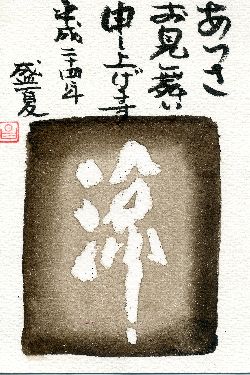 あつさ
お見舞い
申し上げます
平成二十四年
盛夏
涼